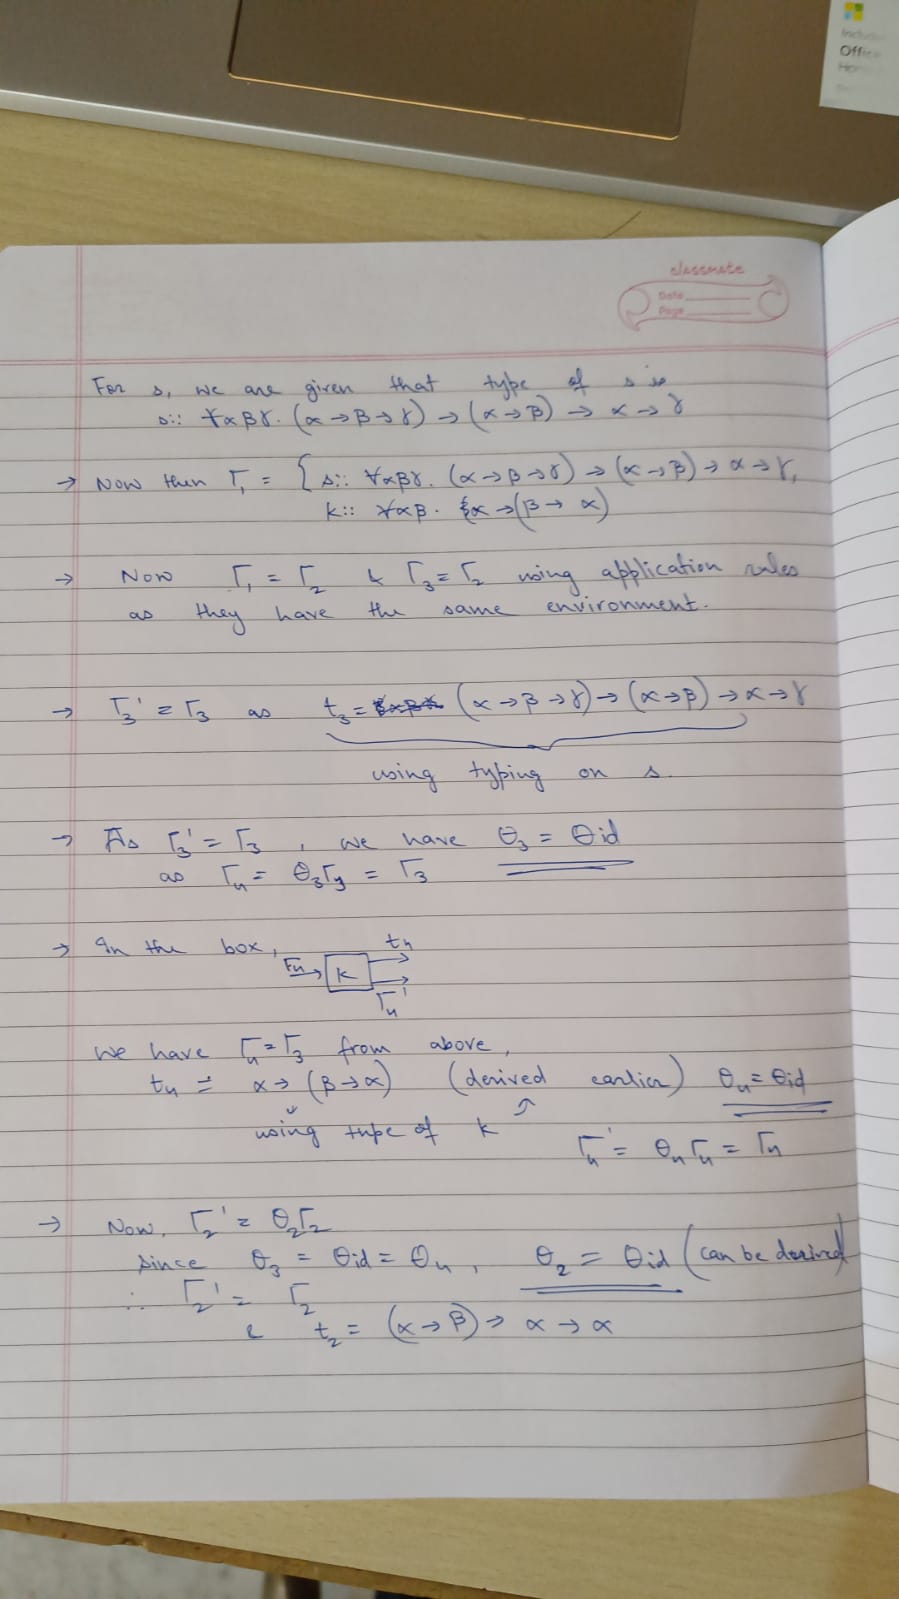 Office
classmate
Date
Page
For s, we are given that type of s is
s:: ∀αβγ. (α→β→γ) → (α→β) → α→γ
→ Now then Γ₁ = { s:: ∀αβγ. (α→β→γ) → (α→β) → α→γ,
k:: ∀αβ. α→(β→α)
→ Now Γ₁ = Γ₂ & Γ₃ = Γ₂ using application rules
as they have the same environment.
→ Γ₃' = Γ₃ as t₃ = (α→β→γ) → (α→β) → α→γ
using typing on s
→ As Γ₃' = Γ₃, we have θ₃ = θid
as Γ₄ = θ₃Γ₃ = Γ₃
→ In the box, Γ₄ → K t₄
Γ₄'
we have Γ₄ = Γ₃ from above,
t₄ = α→(β→α) (derived earlier) θ₄ = θid
using type of k
Γ₄' = θ₄Γ₄ = Γ₄
→ Now, Γ₂' = θ₂Γ₂
since θ₃ = θid = θ₄, θ₂ = θid (can be derived)
∴ Γ₂' = Γ₂
& t₂ = (α→β) → α→α